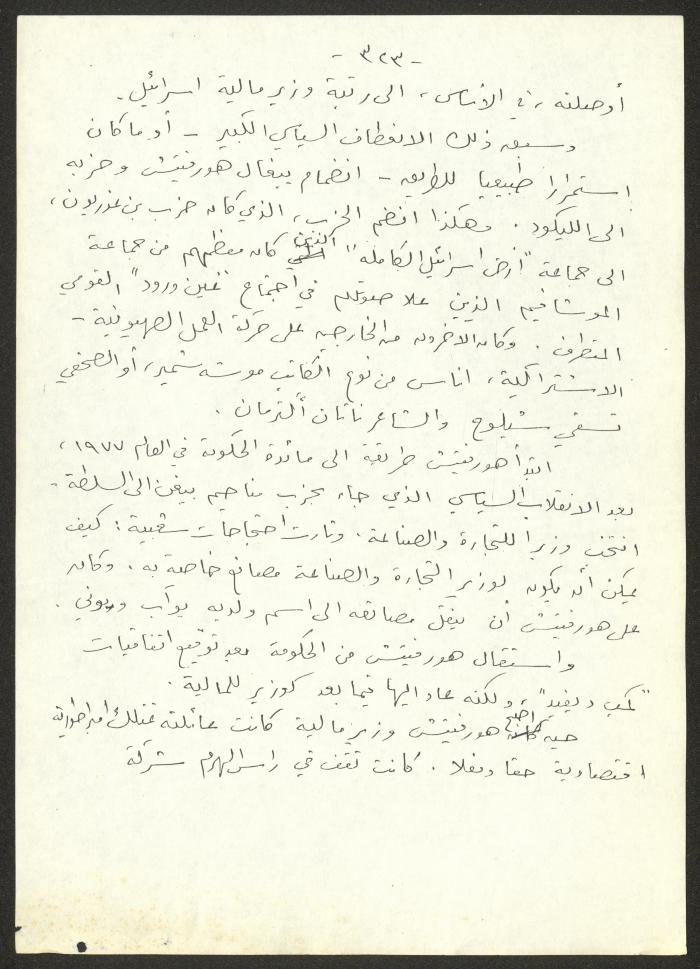 - ٣٢٣ -
أوصلته، في الأساس، الى رتبة وزير مالية اسرائيل.
وسبق ذلك الانعطاف السياسي الكبير - أو ما كان
استمرارا طبيعيا للطريق - انضمام ييغال هورفيتش وحزبه
الى الليكود. وهكذا انضم الحزب، الذي كان حزب بن غوريون،
الى جماعة "أرض اسرائيل الكاملة" الذين كان معظمهم من جماعة
الموشافيم الذين علا صوتهم في اجتماع "عين ورود" القومي
المتطرف. وكان الاخرون من الخارجين على حركة العمل الصهيونية -
الاشتراكية، اناس من نوع الكاتب موشه شمير، أو الصحفي
تسفي شيلوح والشاعر ناتان ألترمان.
ابتدأ هورفيتش طريقه الى مائدة الحكومة في العام ١٩٧٧،
بعد الانقلاب السياسي الذي جاء بحزب مناحيم بيغن الى السلطة.
انتخب وزيرا للتجارة والصناعة. وثارت احتجاجات شعبية: كيف
يمكن أن يكون لوزير التجارة والصناعة مصانع خاصة به. وكان
على هورفيتش أن ينقل مصانعه الى اسم ولديه يوآب وروني.
واستقال هورفيتش من الحكومة بعد توقيع اتفاقيات
"كمب ديفيد"، ولكنه عاد اليها فيما بعد كوزير للمالية.
حين اصبح هورفيتش وزير مالية كانت عائلته تمتلك امبراطورية
اقتصادية حقا وفعلا. كانت تقف في راس الهرم شركة